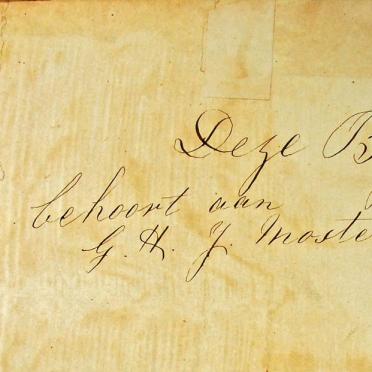 Deze B
behoort aan
G. H. J. Moste